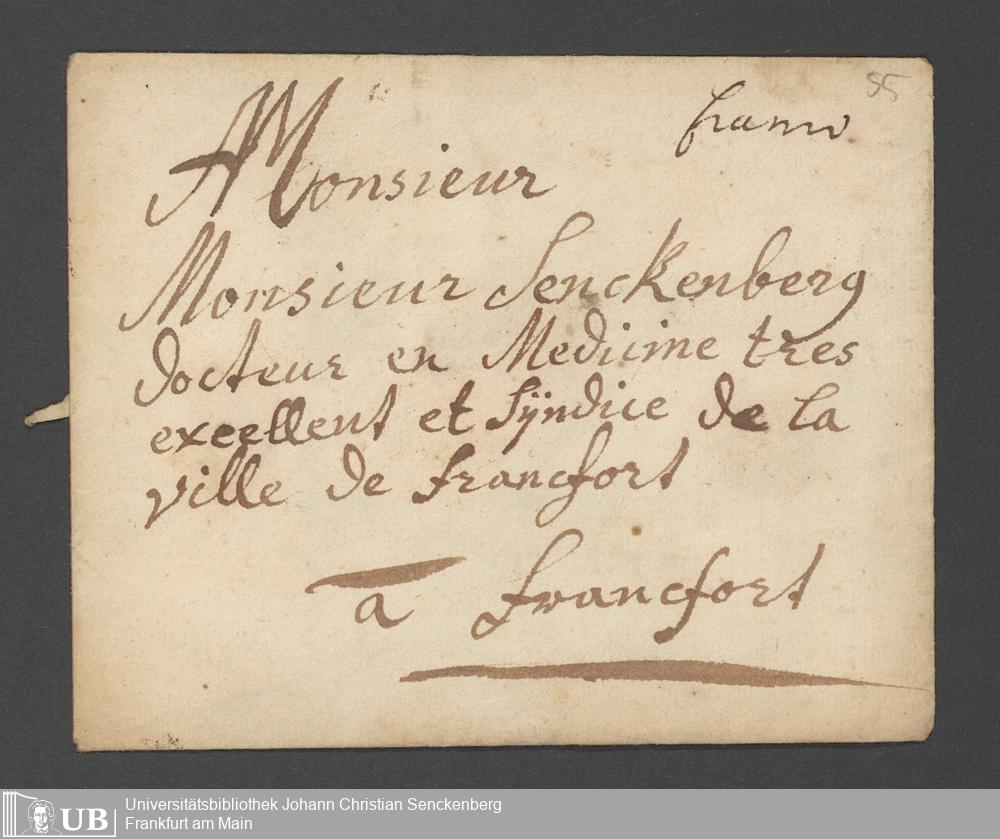 85
franco
A Monsieur
Monsieur Senckenberg
docteur en Medicine tres
excellent et Sÿndice de la
ville de francfort
a francfort
UB Universitätsbibliothek Johann Christian Senckenberg
Frankfurt am Main